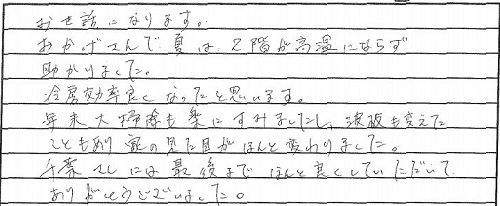 お世話になります。
おかげさんで、夏は、2階が高温にならず
助かりました。
冷房効率良くなったと思います。
年末大掃除も楽にすみましたし、波板も変えた
こともあり家の見た目がほんと変わりました。
千葉さんには最後までほんと良くしていただいて
ありがとうございました。